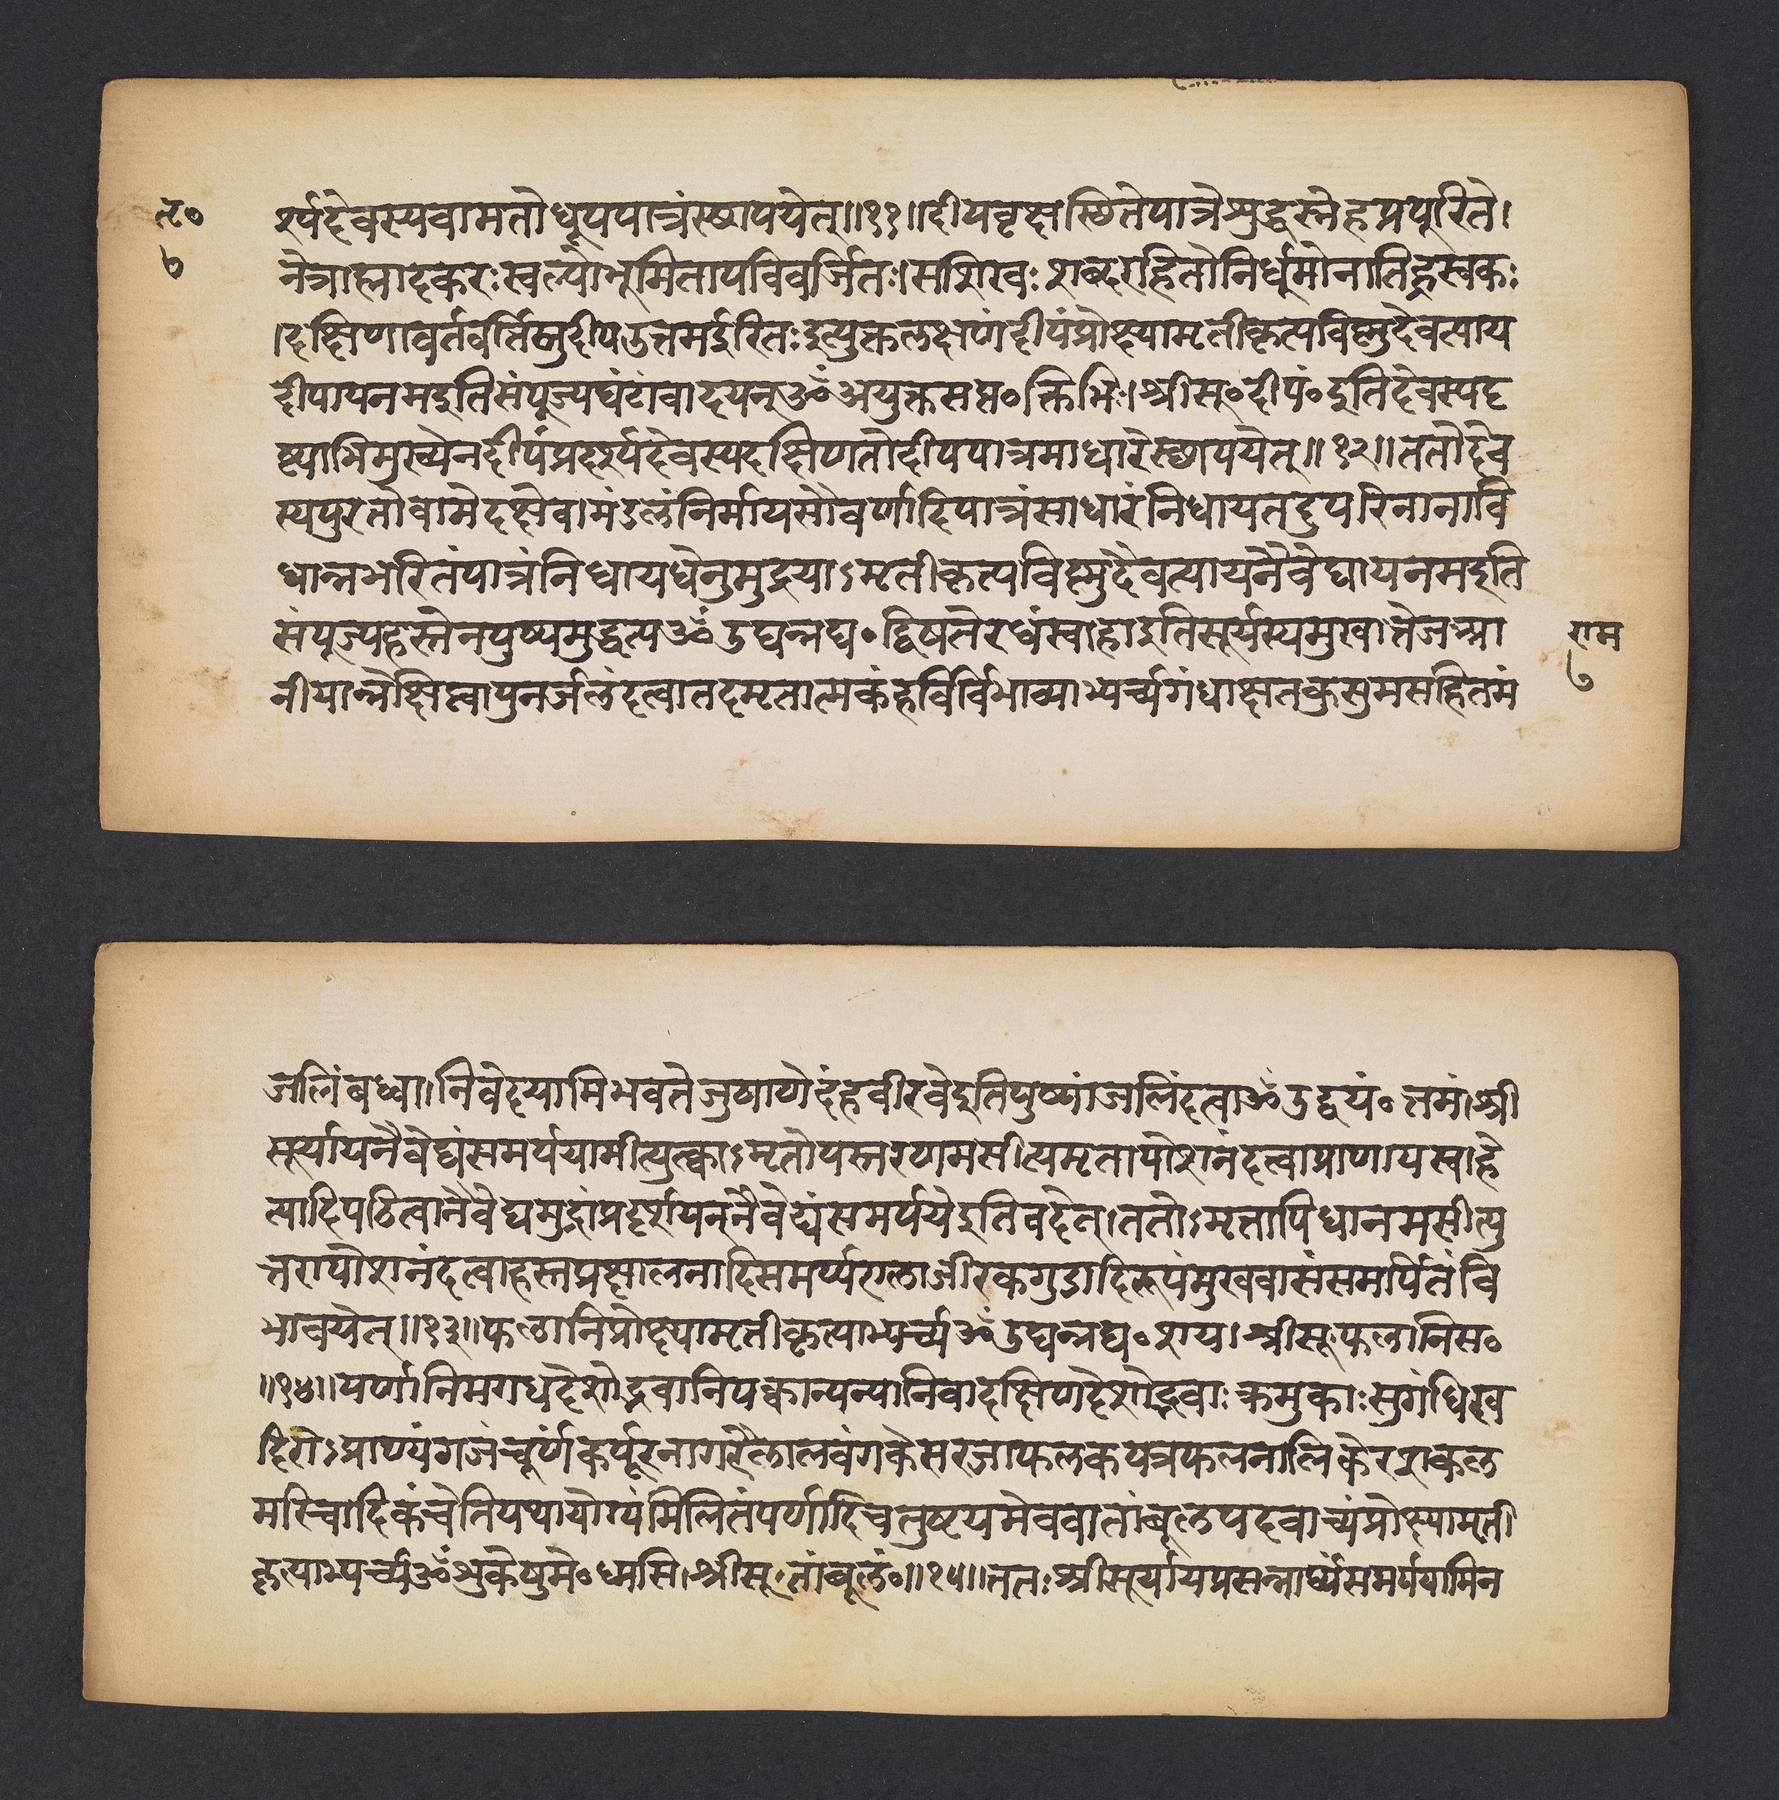 तृ०
७
र्श्यदेवस्यवामतोधूपपात्रंस्थापयेत्॥११॥दीपवृक्षस्थितेपात्रेशुद्धस्नेहप्रपूरिते।
नेत्राह्लादकरःस्वल्पोभूमितापविवर्जितः।सशिखः शब्दरहितोनिर्धूमोनातिह्रस्वकः
।दक्षिणावर्तवर्तिस्तुदीपउत्तमईरितःइत्युक्तलक्षणंदीपंप्रोक्ष्यामृतीकृत्यविष्णुदैवत्याय
दीपायनमइतिसंपूज्यघंटांवादयन्ॐअयुक्तसप्त०क्तिभिः।श्रीसू०दीपं०इतिदेवस्यदृ
ष्ट्याभिमुख्येनदीपंप्रदर्श्यदेवस्यदक्षिणतोदीपपात्रमाधारेस्थापयेत्॥१२॥ततोदेव
स्यपुरतोवामेदक्षेवामंडलंनिर्मायसौवर्णादिपात्रंसाधारंनिधायतदुपरिनानावि
धान्नभरितंपात्रंनिधायधेनुमुद्रयाऽमृतीकृत्यविष्णुदैवत्यायनैवेद्यायनमइति
संपूज्यहस्तेनपुष्पमुद्धृत्यॐउद्यन्नद्य०द्विषतेरधंस्वाहाइतिसूर्यस्यमुखात्तेजआ
नीयान्नेक्षिप्त्वापुनर्जलंदत्वातदमृतात्मकंहविर्विभाव्याभ्यर्च्यगंधाक्षतकुसुमसहितमं
राम
७
जलिंबध्वा।निवेदयामिभवतेजुषाणेदंहवीरवेइतिपुष्पांजलिंदत्वाॐउद्वयं०त्तमं।श्री
सूर्यायनैवेद्यंसमर्पयामीत्युत्क्वाऽमृतोपस्तरणमसीत्यमृतापोशनंदत्वाप्राणायस्वाहे
त्यादिपठित्वानैवेद्यमुद्रांप्रदर्शयन्नैवेद्यंसमर्पयेइतिवदेत्।ततोऽमृतापिधानमसीत्यु
त्तरापोशनंदत्वाहस्तप्रक्षालनादिसमर्प्यएलाजीरकगुडादिरूपंमुखवासंसमर्पितंवि
भावयेत्॥१३॥फलानिप्रोक्ष्यामृतीकृत्याभ्यर्च्यॐउद्यन्नद्य०शाय।श्रीसू॰फलानिस०
॥१४॥पर्णानिमगधदेशोद्भवानिपक्वान्यन्यानिवादक्षिणदेशोद्भवाःक्रमुकाःसुगंधिख
दिरोऽप्राण्यंगजंचूर्णंकर्पूरनागरैलालवंगकेसरजाफलकपत्रफलनालिकेरशकल
मरिचादिकंचेतियथायोग्यंमिलितंपर्णादिचतुष्टयमेववातांबूलपदवाच्यंप्रोक्ष्यामृती
कृत्याभ्यर्च्यॐशुकेषुमे०ध्मसि।श्रीसू॰तांबूलं०॥१५॥ततःश्रीसूर्यायप्रसन्नार्घ्यंसमर्पयामिन